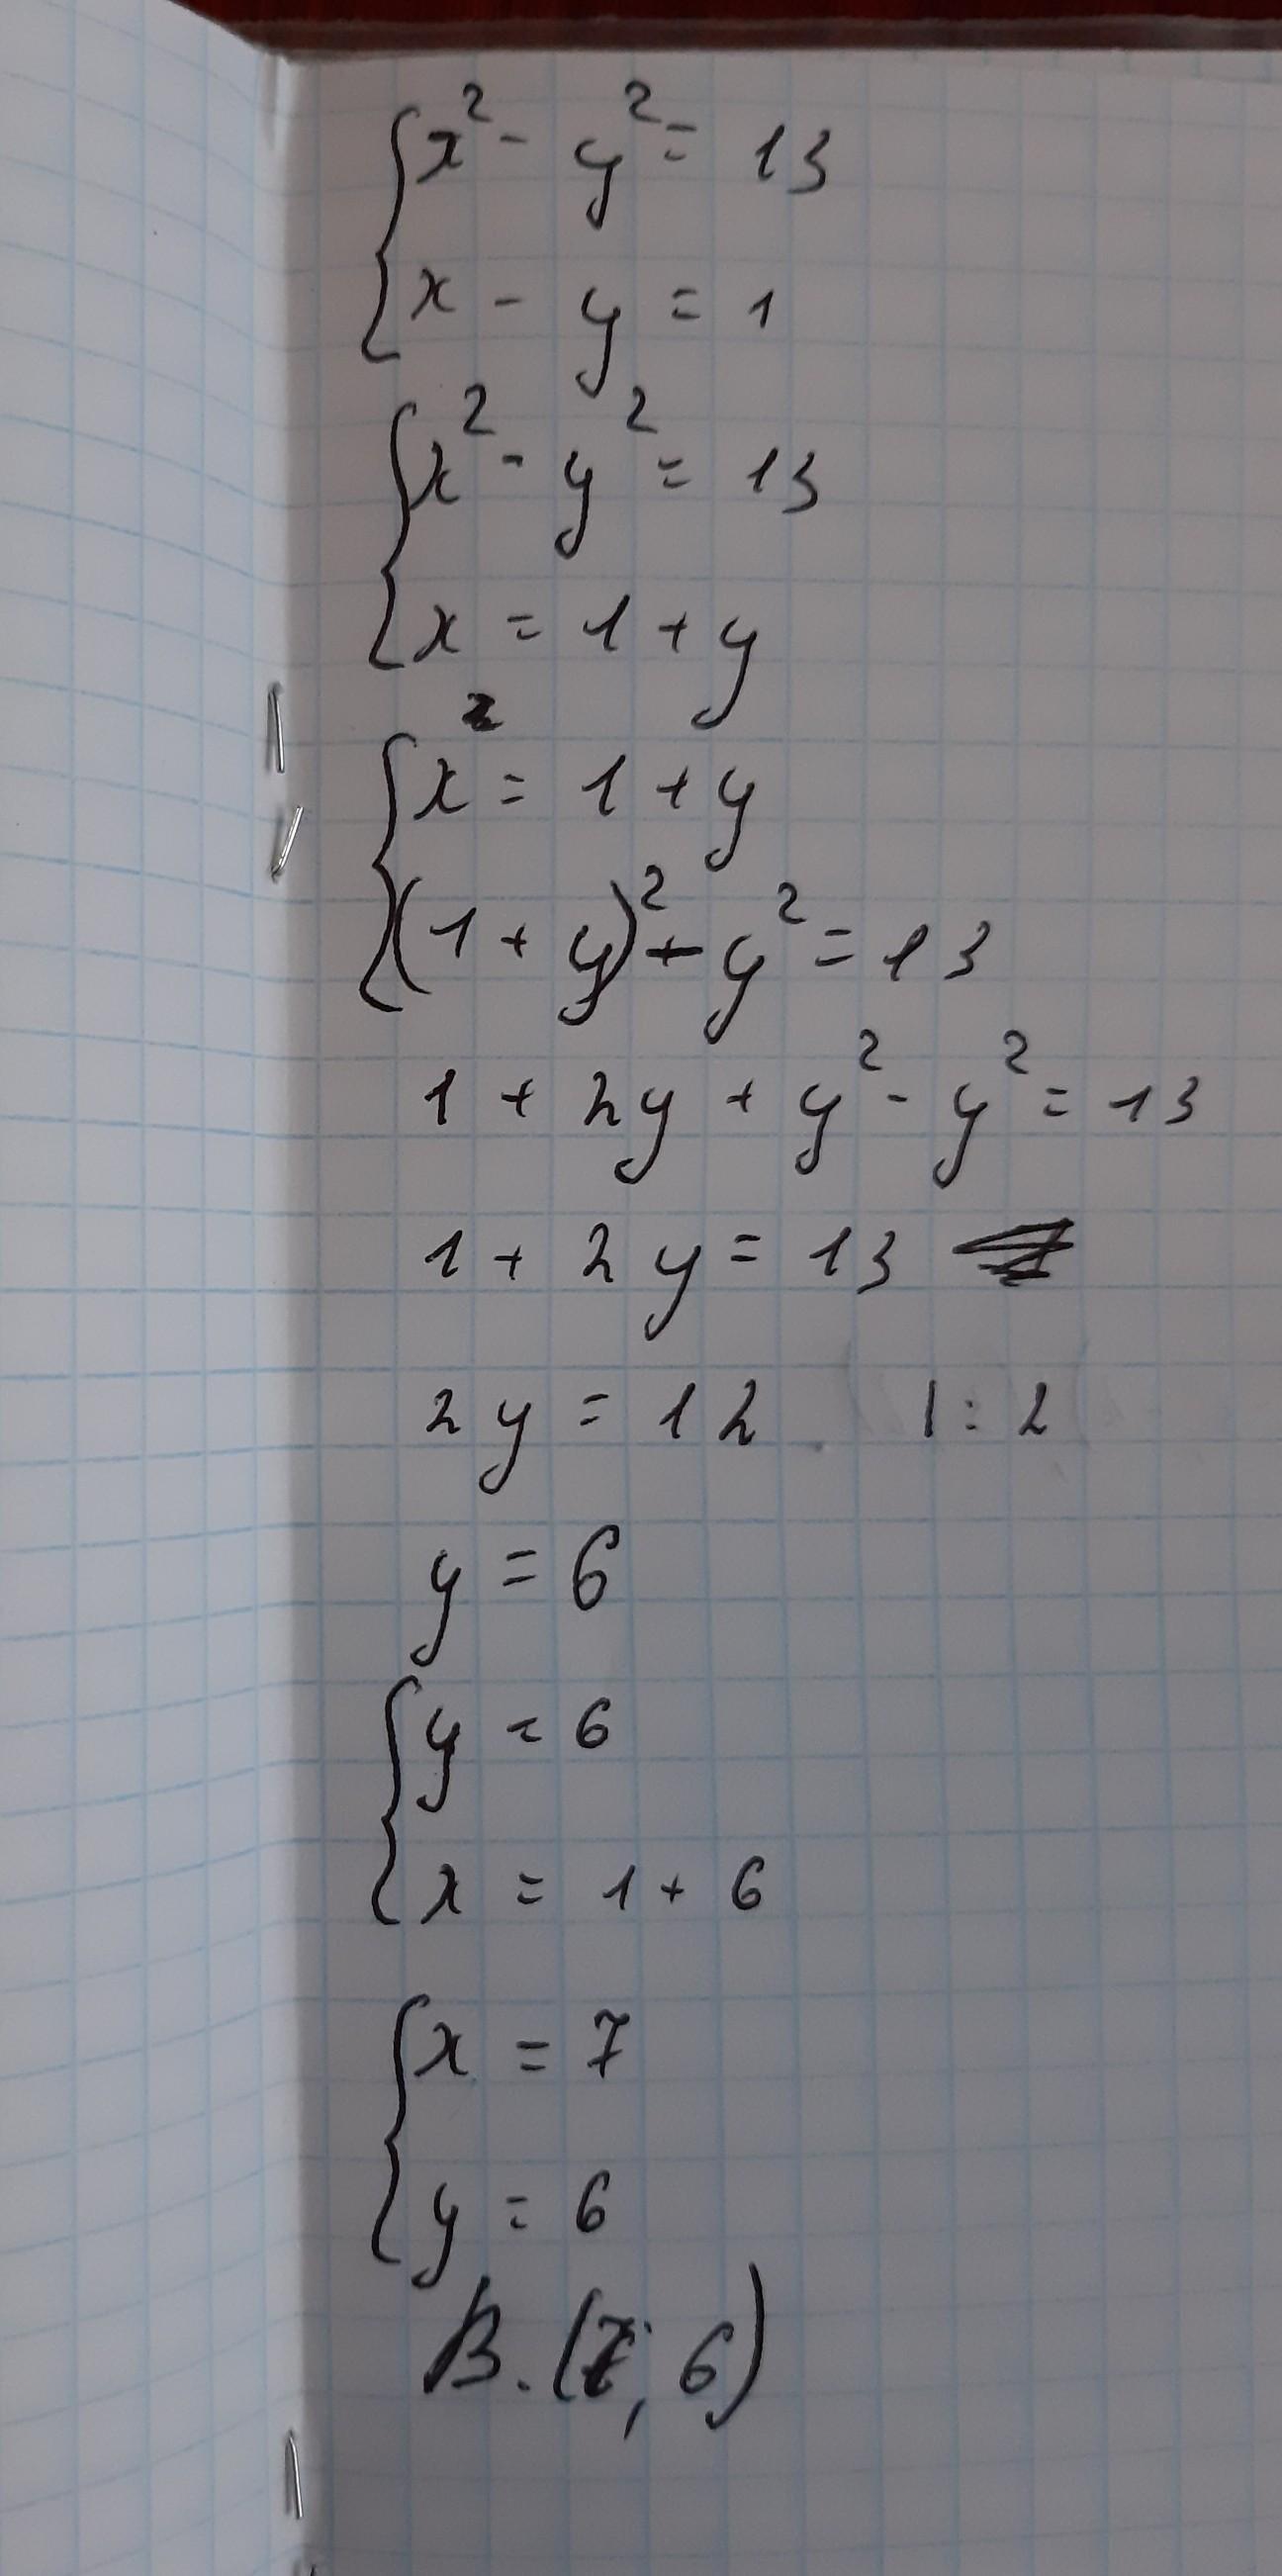 {x² - y² = 13
{x - y = 1
{x² - y² = 13
{x = 1 + y
{x = 1 + y
{(1 + y)² - y² = 13
1 + 2y + y² - y² = 13
1 + 2y = 13
2y = 12 |: 2
y = 6
{y = 6
{x = 1 + 6
{x = 7
{y = 6
В. (7; 6)